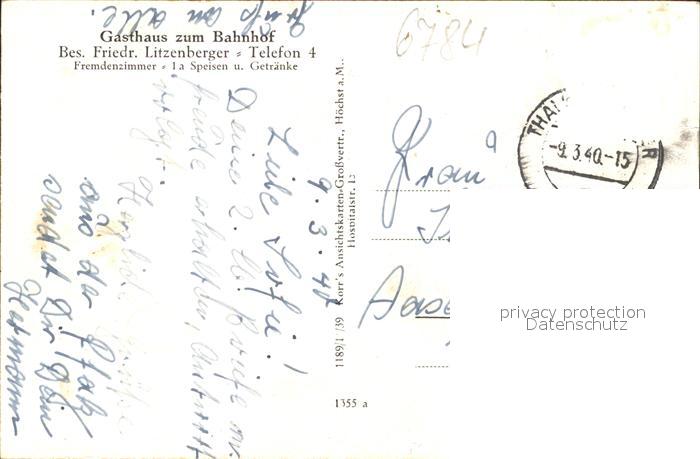 Gruß an alle.
Gasthaus zum Bahnhof
Bes. Friedr. Litzenberger - Telefon 4
Fremdenzimmer - 1a Speisen u. Getränke
6784
9.3.40
Liebe
Deine 2. lb. Briefe m.
Freude erhalten, Antwort
folgt.
Herzliche Grüße
aus der Pfalz
sendet Dir Dein
Hermann
1189/1/39 Korr's Ansichtskarten-Großvertr., Höchst a.M.,
Hospitalstr. 13
1355 a
THAL
-9.3.40.-15
Frau
privacy protection
Datenschutz